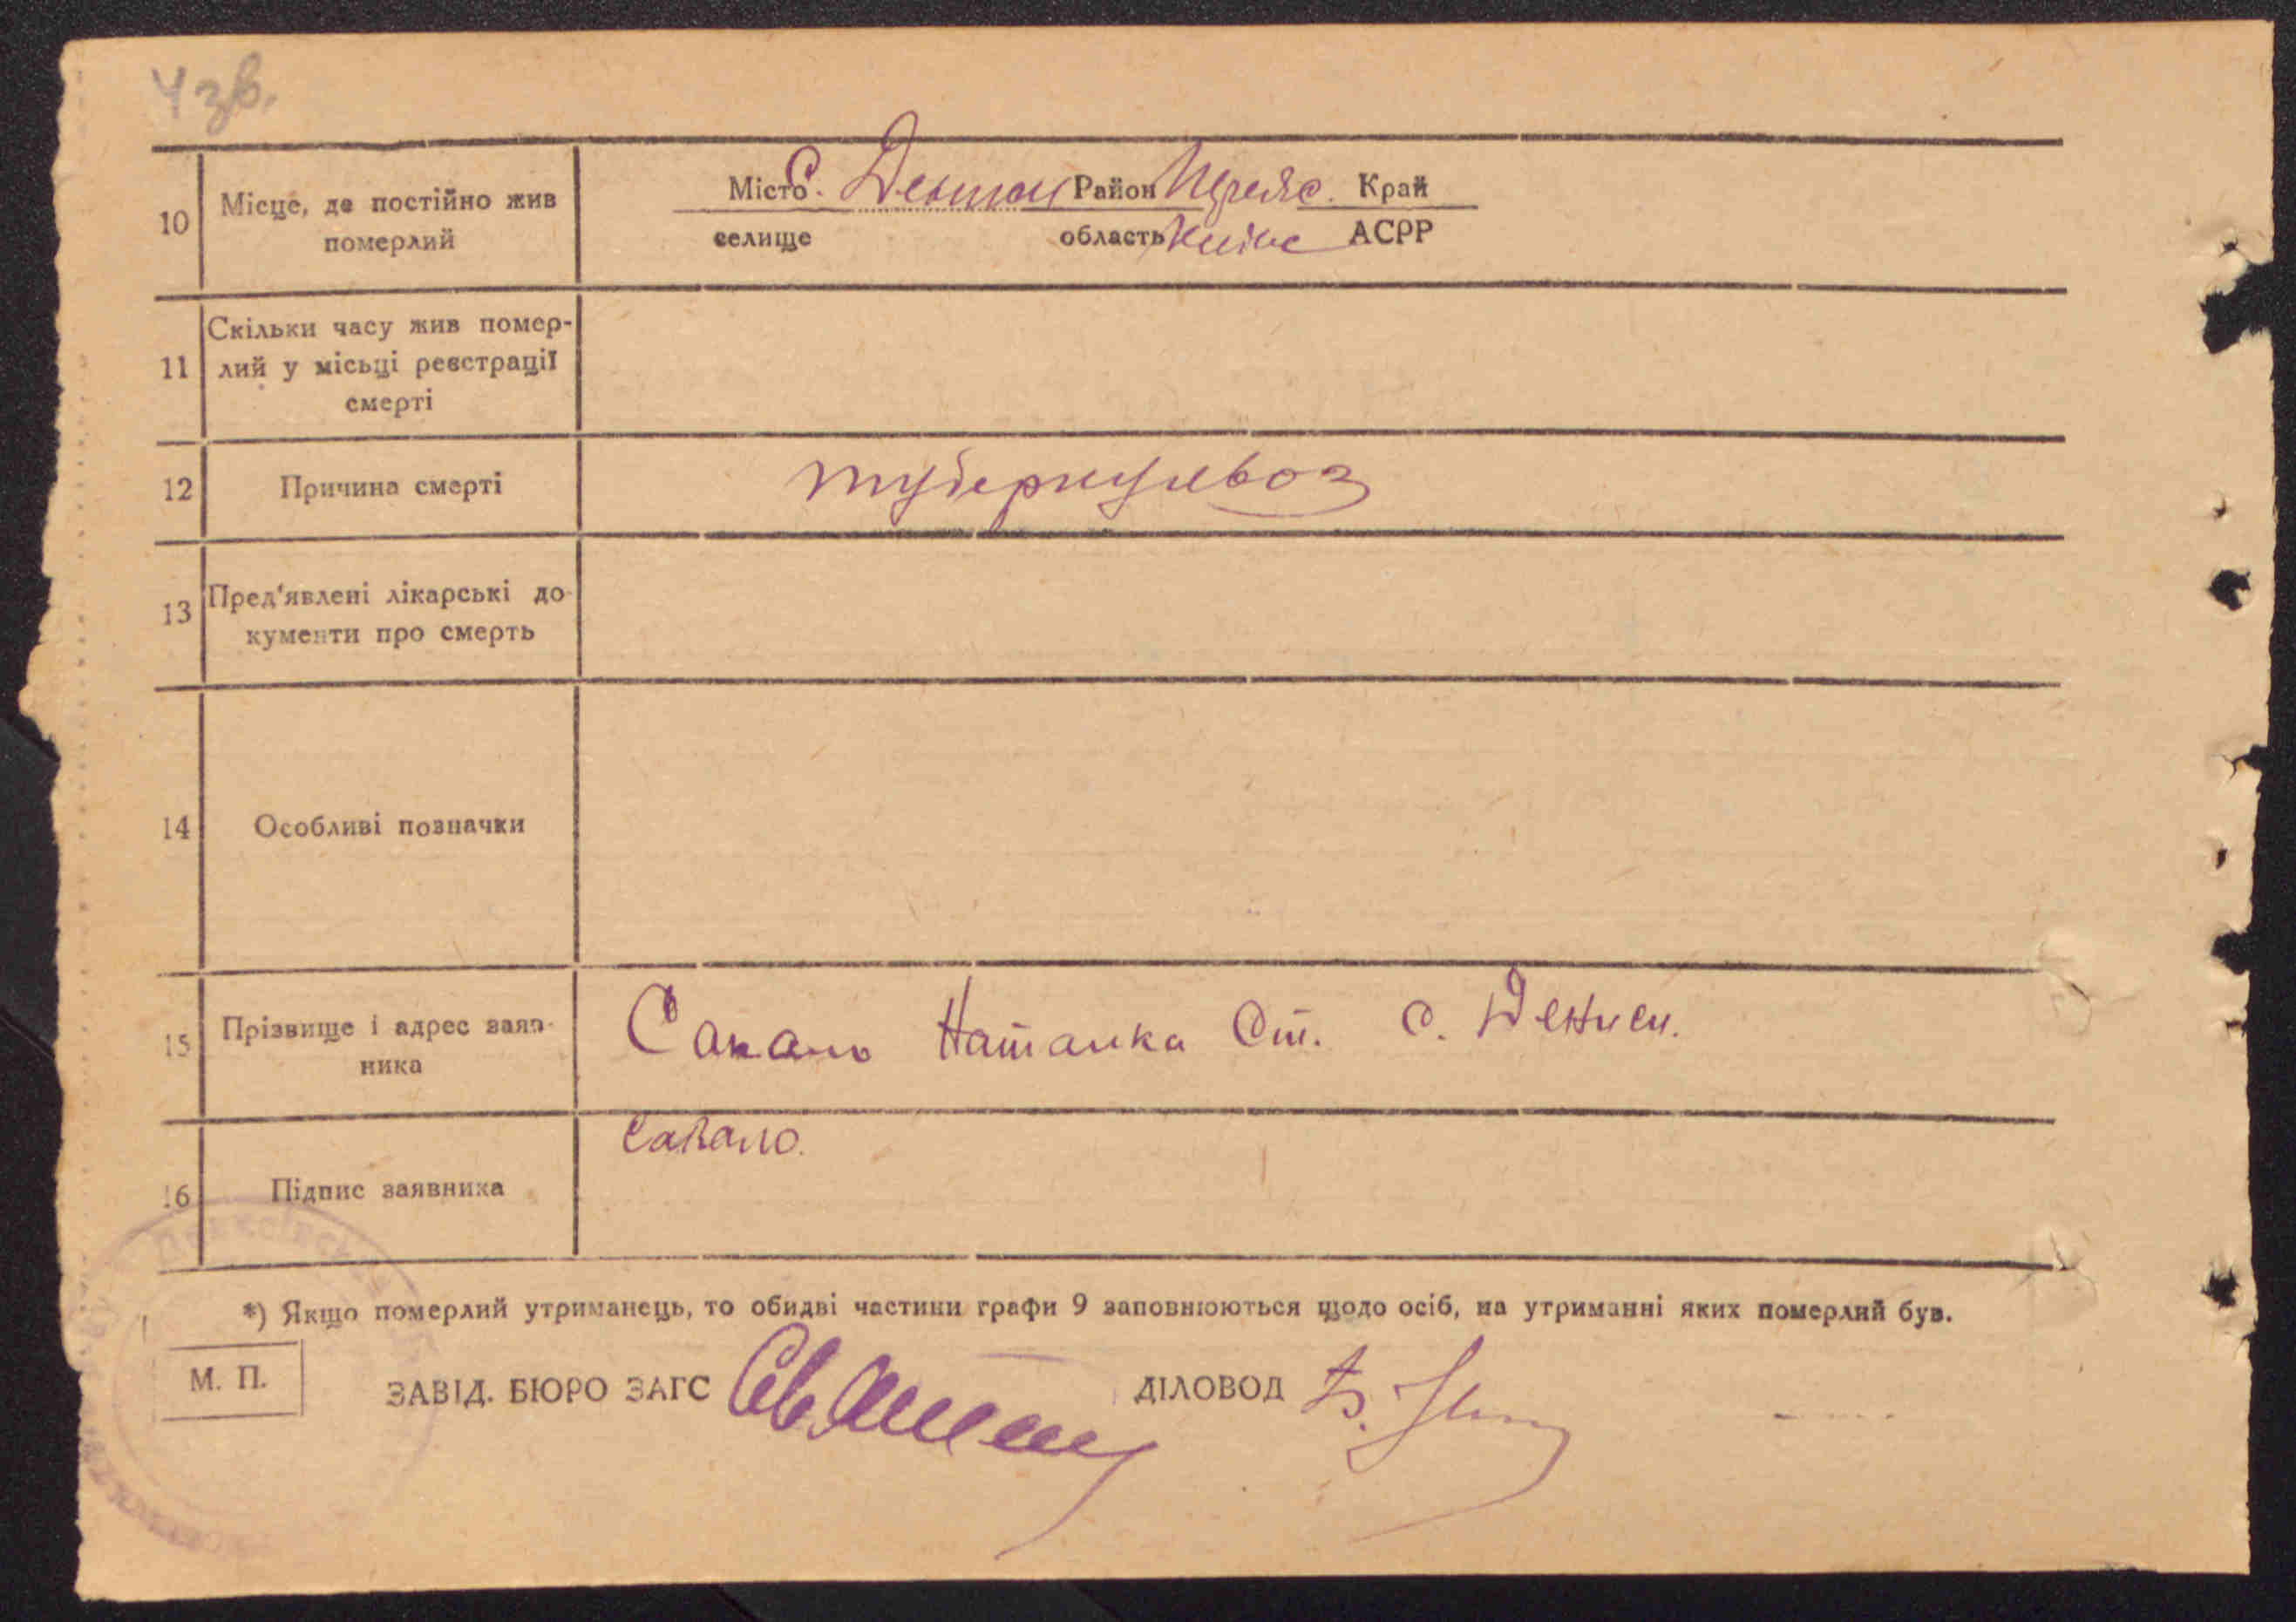 4 зв.
10 Місце, де постійно жив померлий
Місто с. Район Переяс. Край
селище область Київс АСРР
11 Скільки часу жив помер-
лий у місьці реєстрації
смерті
12 Причина смерті туберкульоз
13 Пред'явлені лікарські до-
кументи про смерть
14 Особливі позначки
15 Прізвище і адрес заяв-
ника
Сакало Наталка Ст. с. Дениси.
16 Підпис заявника Сакало.
*) Якщо померлий утриманець, то обидві частини графи 9 заповнюються щодо осіб, на утриманні яких померлий був.
М. П. ЗАВІД. БЮРО ЗАГС ДІЛОВОД